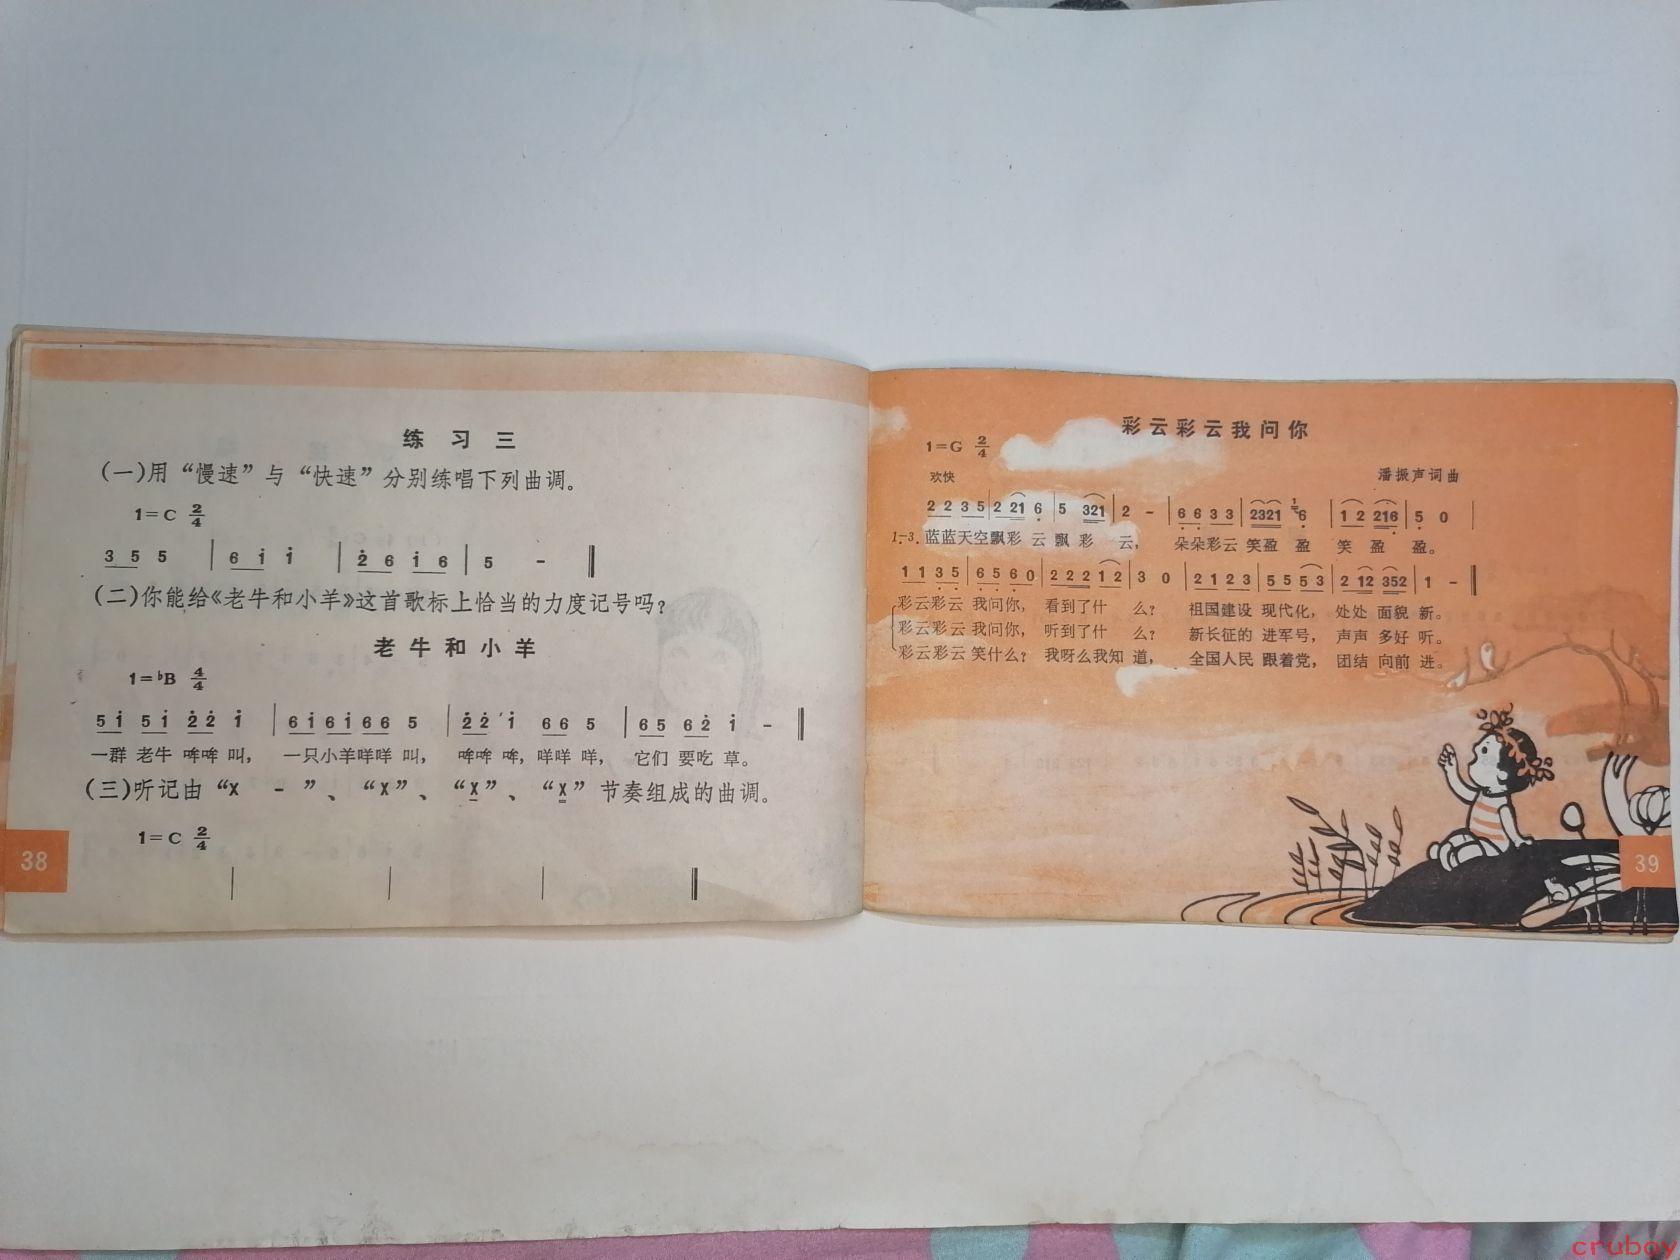 练习三
(一)用“慢速”与“快速”分别练唱下列曲调。
1=C 2/4
3 5 5 | 6 i̇ i̇ | 2̇ 6 i̇ 6 | 5 - ‖
(二)你能给《老牛和小羊》这首歌标上恰当的力度记号吗？
老牛和小羊
1=♭B 4/4
5 i̇ 5 i̇ 2̇ 2̇ i̇ | 6 i̇ 6 i̇ 6 6 5 | 2̇ 2̇ ʼ i̇ 6 6 5 | 6 5 6 2̇ i̇ - ‖
一群 老牛 哞哞 叫， 一只小羊咩咩 叫， 哞哞 哞，咩咩 咩， 它们 要吃 草。
(三)听记由“X - ”、“X”、“X”、“X”节奏组成的曲调。
1=C 2/4
38
彩云彩云我问你
1=G 2/4
欢快
潘振声词曲
2 2 3 5 | 2 21 6 | 5 321 | 2 - | 6 6 3 3 | 2321 1 6 | 1 2 216 | 5 0 |
1-3. 蓝蓝天空飘彩 云 飘 彩 云， 朵朵彩云 笑盈 盈 笑 盈 盈。
1 1 3 5 | 6 5 6 0 | 2 2 2 1 2 | 3 0 | 2 1 2 3 | 5 5 5 3 | 2 12 352 | 1 - ‖
彩云彩云 我问你， 看到了什 么？ 祖国建设 现代化， 处处 面貌 新。
彩云彩云 我问你， 听到了什 么？ 新长征的 进军号， 声声 多好 听。
彩云彩云 笑什么？ 我呀么我知 道， 全国人民 跟着党， 团结 向前 进。
39
cruboy